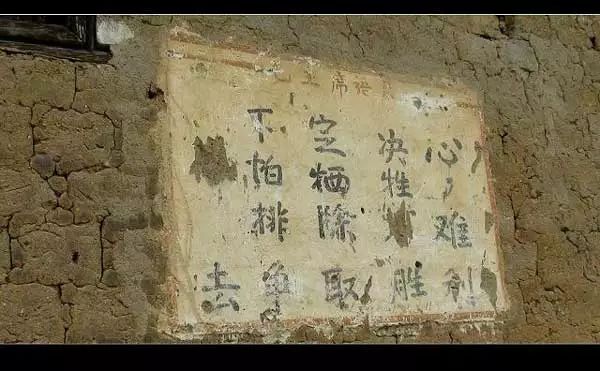 主席语
下定决心，
怕牺牲，
排除难
去争取胜利